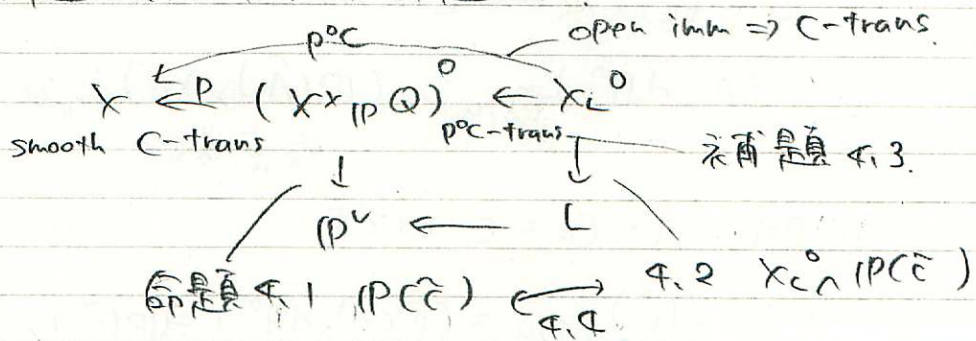 p°C open imm ⇒ C-trans.
X ←p (X×ℙ Q)° ← X_L°
smooth C-trans p°C-trans 補題 4.3.
↓ ↓
ℙ^∨ ← L
命題 4.1 ℙ(C̃) ↔ 4.2 X_L° ∩ ℙ(C̃)
4.4